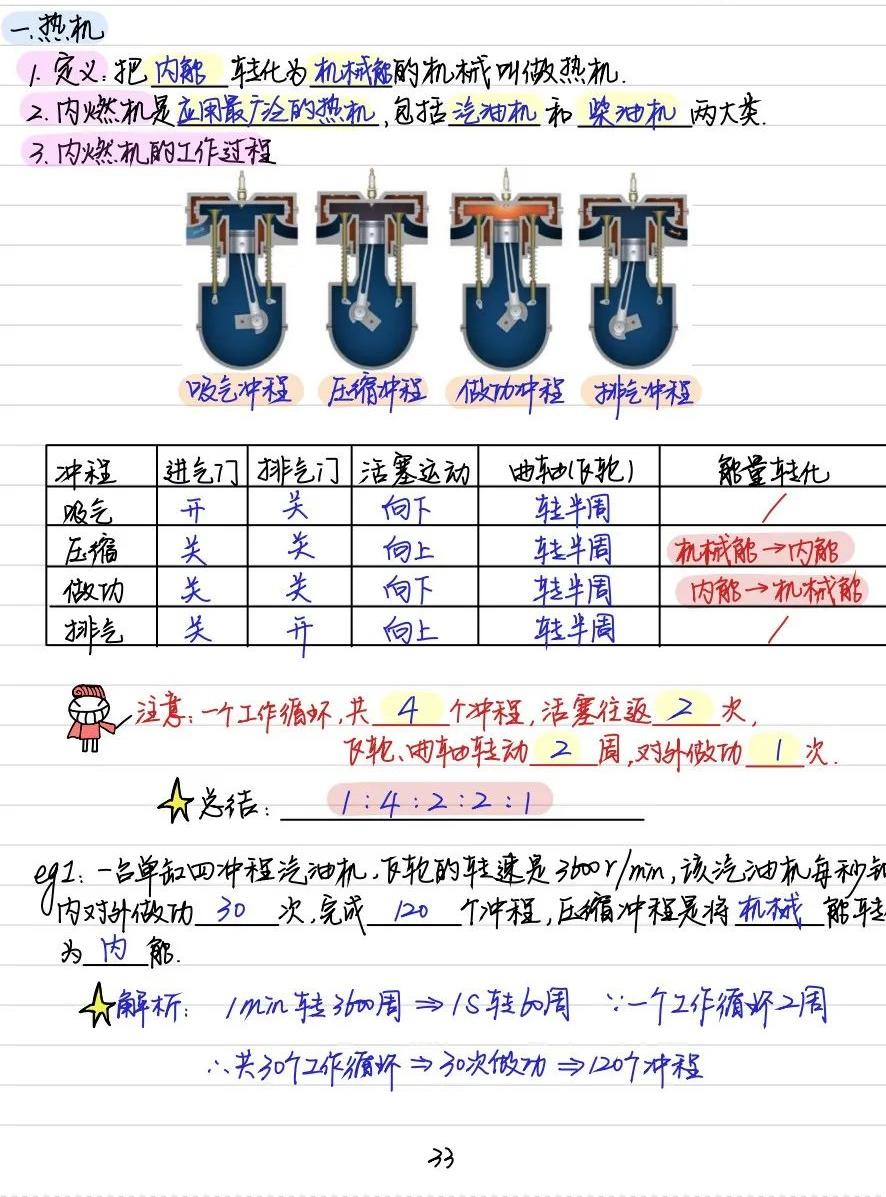 一.热机
1. 定义:把 内能 转化为 机械能 的机械叫做热机.
2. 内燃机是应用最广泛的热机,包括 汽油机 和 柴油机 两大类.
3. 内燃机的工作过程
吸气冲程 压缩冲程 做功冲程 排气冲程
冲程 进气门 排气门 活塞运动 曲轴(飞轮) 能量转化
吸气 开 关 向下 转半周 /
压缩 关 关 向上 转半周 机械能→内能
做功 关 关 向下 转半周 内能→机械能
排气 关 开 向上 转半周 /
注意:一个工作循环,共 4 个冲程,活塞往返 2 次,
飞轮、曲轴转动 2 周,对外做功 1 次.
总结: 1:4:2:2:1
eg1:一台单缸四冲程汽油机,飞轮的转速是3600r/min,该汽油机每秒钟
内对外做功 30 次,完成 120 个冲程,压缩冲程是将 机械 能转
为 内 能.
解析: 1min转3600周⇒1S转60周 ∵一个工作循环2周
∴共30个工作循环⇒30次做功⇒120个冲程
33